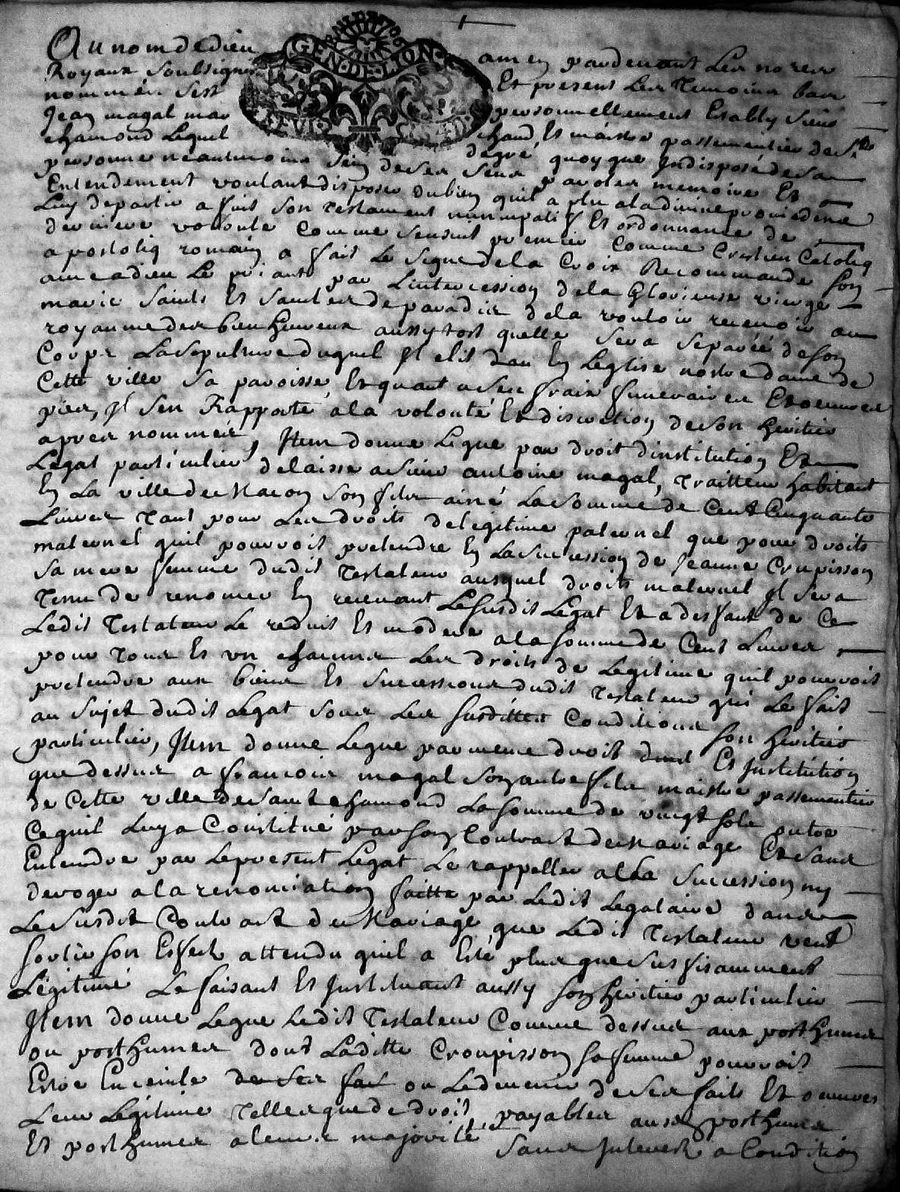 Au nom de dieu amen pardevant Les nores
GEN·DE·LION·
Royaux Soubsignes Et present Les Temoins bas
nommés Sest personnellement Estably Sieur
Jean magal mar chand Et maistre passementier de St
chamond Lequel degré quoyque Indisposé de Sa
personne neantmoins Sein de Ses Sens parolles memoire Et
Entendement voulant disposer du bien quil a plu a la divine providence
Luy departir a fait Son Testament nuncupatif Et ordonnance de
derniere volonté Comme Sensuit premier Comme Crestien Catoliq
apostoliq romain, a fait Le Signe de la Croix Recommandé Son
ame a dieu Le priant par Lintercession de la Glorieuse vierge
marie Saints Et Saintes de paradis de la vouloir recevoir au
royaume des bien heureux aussytost quelle Sera Separée de Son
Corps La Sepulture duquel Jl elit dans En Leglise nostre dame de
Cette ville Sa paroisse Et quant a Ses fraix funeraires Et oeuvres
pies, Jl Sen Rapporte a la volonté Et discretion de Son heritier
apres nommer, Jtem donne Legue par droit dinstitution Et
Legat particulier delaisse a Sieur antoine magal, Traitteur habitant
En La ville de Macon Son fils ainé La Somme de Cent Cinquante
Livres Tant pour Les droits de legitime paternel que pour droits
maternel quil pourroit pretendre En La Succession de Jeanne Croupisson
Sa mere femme dudit Testateur ausquel droits maternel Jl Sera
Tenu de renoncer En recevant Le Susdit Legat Et a deffaut de Ce
Ledit Testateur Le reduit Et modere a la Somme de Cent Livres
pour Tous Et un chacuns Les droits de Legitime quil pourroit
pretendre aux biens Et Successions dudit Testateur qui Le fait
au Sujet dudit Legat Sous Les Susdittes Conditions Son heritier
particulier, Jtem donne Legue par meme droit dinst Et Jnstitution
que dessus a francois magal Son autre fils maistre passementier
de Cette ville de Saint chamond La Somme de vingt Sols outre
Cequil Luy a Constitué par Son Contract de Mariage Et Sans
Entendre par Le present Legat Le rappeller a Sa Succession ny
deroger a la renonciation faitte par Ledit Legataire dans
Le Susdit Contract de Mariage que Ledit Testateur veut
Sortir Son Effect attendu quil a Eté plus que Suffisamment
Legitimé Le faisant Et Jnstituant aussy Son heritier particulier
Jtem donne Legue Ledit Testateur Comme dessus aux posthume
ou posthumes dont Laditte Croupisson Sa femme pourroit
Estre Enceinte de Ses fait ou Ledevenir de Ses faits Et oeuvres
Leur Legitime Telles que de droit payables aux posthume
Et posthumes a leurs majorité Sans Jnterest a Condition